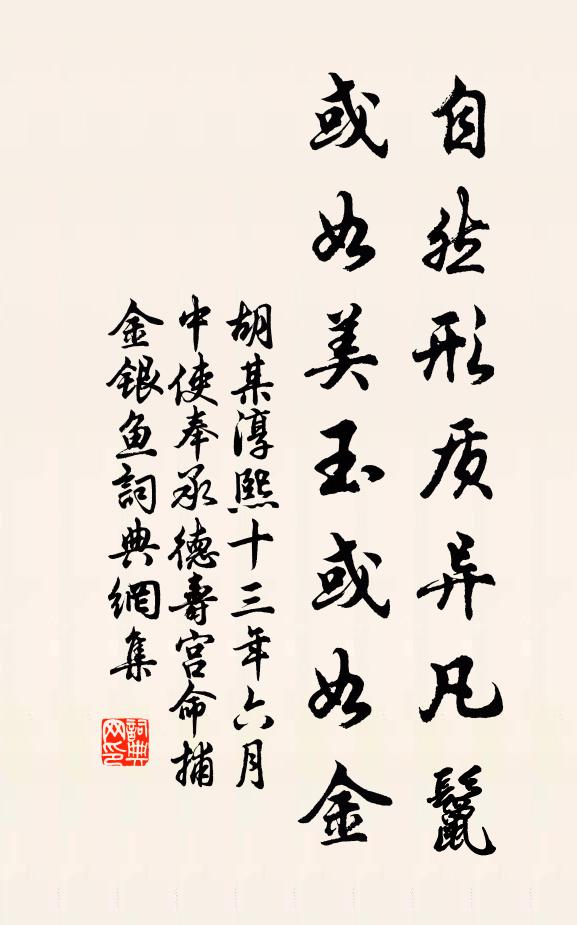 自然形质异凡鬣
或如美玉或如金
胡某淳熙十三年六月
中使奉承德壽宫命捕
金银鱼詞典網集
詞典
网印